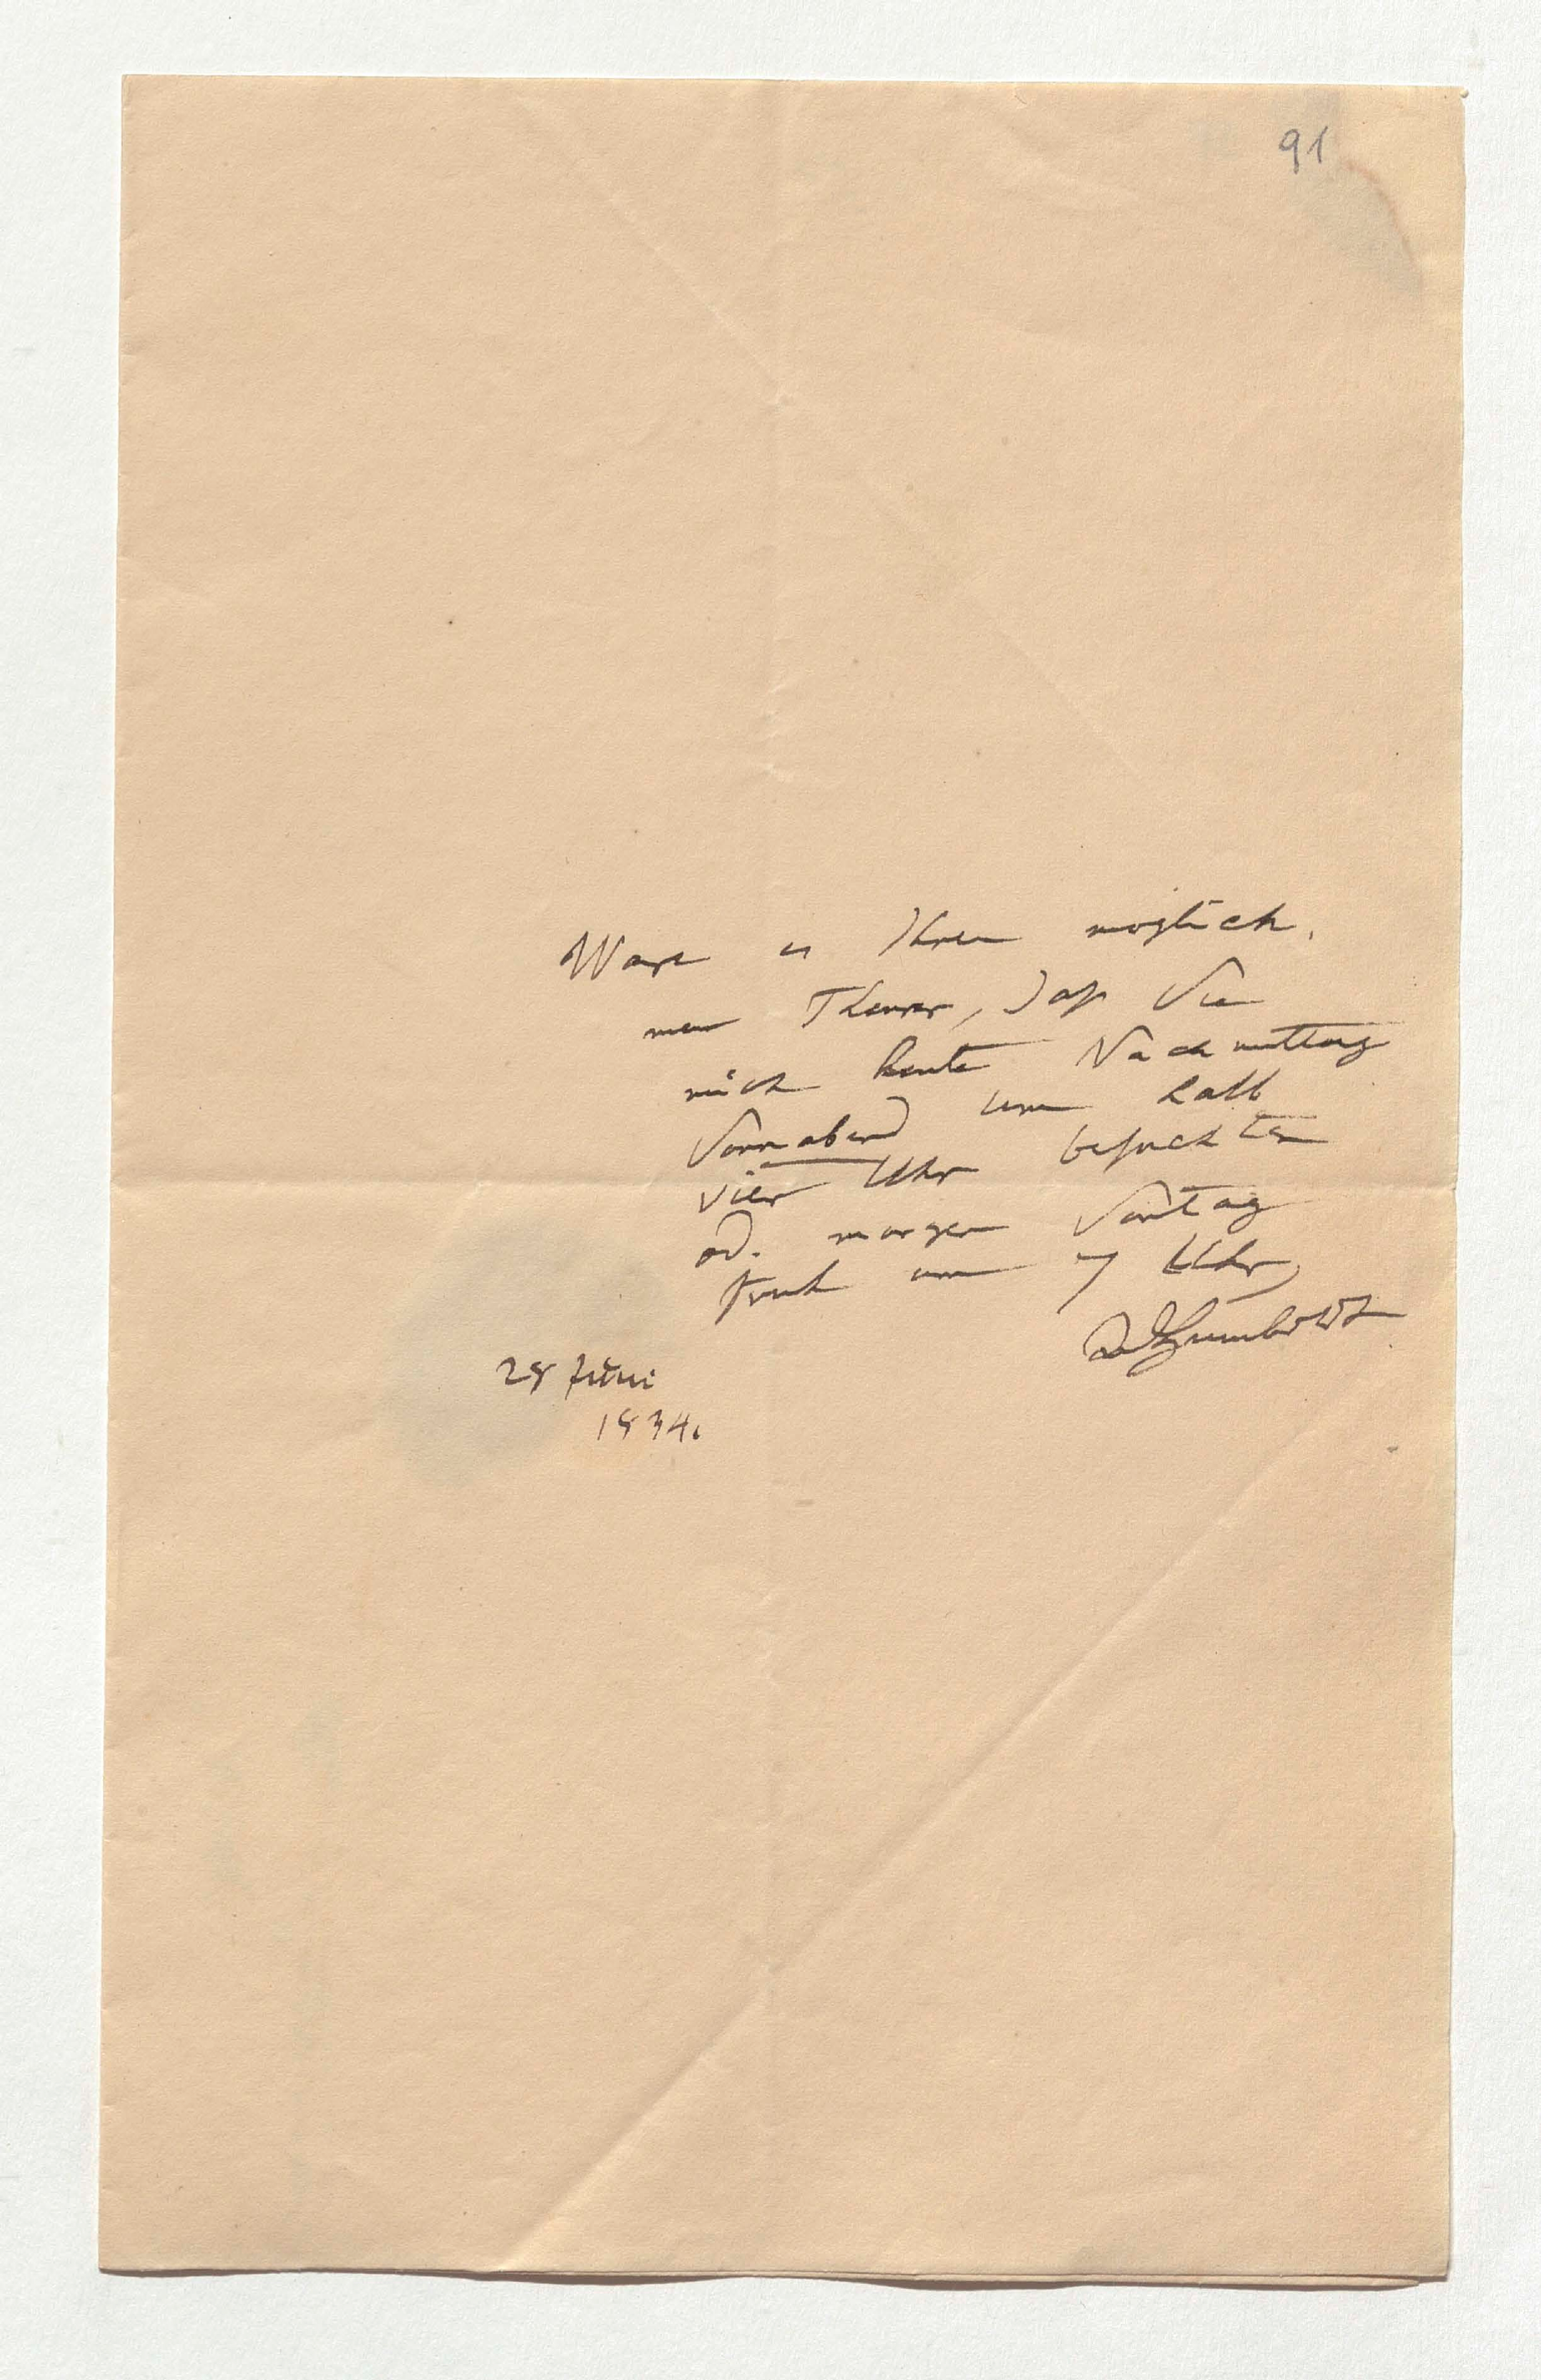 91
Ware es Ihnen moglich,
mein Theurer, daß Sie
mich heute Nachmittag
Sonnabend um halb
vier Uhr besuchten
od. morgen Sontag
fruh um 7 Uhr,
AlHumboldt
28 Juni
1834.